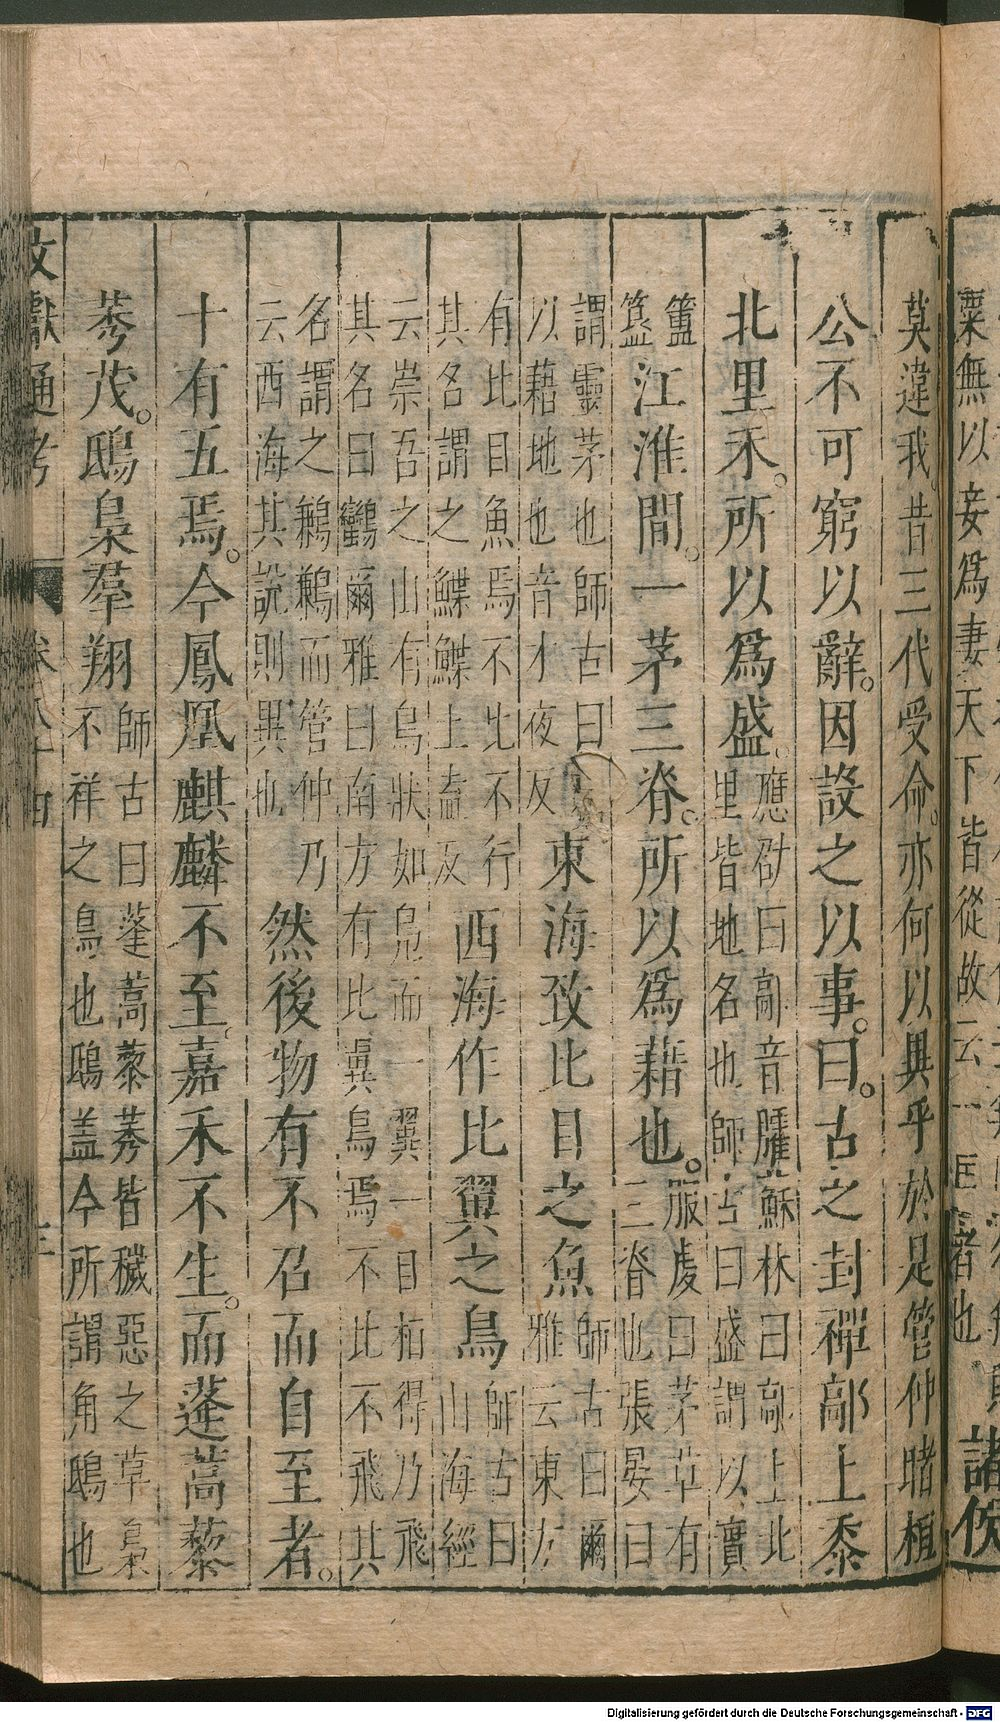 粟無以妾爲妻天下皆從故云一匡者也諸侯
莫違我。昔三代受命。亦何以異乎於是管仲睹桓
公不可窮以辭。因設之以事。曰。古之封禪鄗上黍
北里禾。所以爲盛。應劭曰鄗音臛蘇林曰鄗上北
里皆地名也師古曰盛謂以實
簠
簋江淮間。一茅三脊。所以爲藉也。服虔曰茅草有
三脊也張晏曰
謂靈茅也師古曰
以藉地也音才夜反東海致比目之魚師古曰爾
雅云東方
有比目魚焉不比不行
其名謂之鰈鰈土盍反西海作比翼之鳥師古曰
山海經
云崇吾之山有鳥狀如鳧而一翼一目相得乃飛
其名曰鸞爾雅曰南方有比翼鳥焉不比不飛其
名謂之鶼鶼而管仲乃
云西海其說則異也然後物有不召而自至者。
十有五焉。今鳳凰麒麟不至。嘉禾不生。而蓬蒿藜
莠茂。鴟梟羣翔師古曰蓬蒿藜莠皆穢惡之草梟
不祥之鳥也鴟盖今所謂角鴟也
文獻通考
卷八十四
三
Digitalisierung gefördert durch die Deutsche Forschungsgemeinschaft - DFG